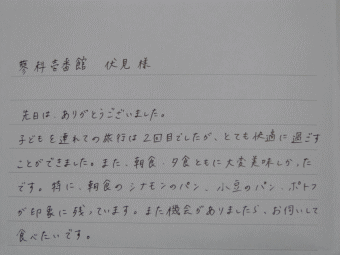 蓼科壱番館 伏見様
先日は、ありがとうございました。
子どもを連れての旅行は2回目でしたが、とても快適に過ごす
ことができました。また、朝食、夕食ともに大変美味しかった
です。特に、朝食のシナモンのパン、小豆のパン、ポトフ
が印象に残っています。また機会がありましたら、お伺いして
食べたいです。